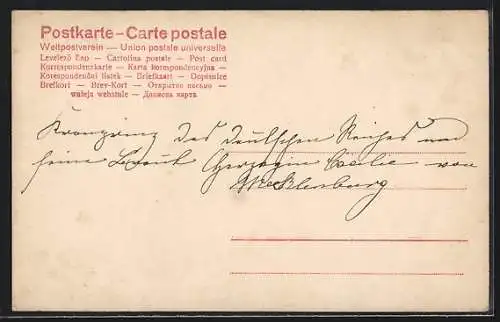 Postkarte – Carte postale
Weltpostverein — Union postale universelle
Levelező Lap — Cartolina postale — Post card
Korrespondenzkarte — Karta korespondencyjna —
Korespondenční lístek — Briefkaart — Dopisnice
Brefkort — Brev-Kort — Открытое письмо —
Дописна карта
Kronprinz des deutschen Reiches und
seine Braut Herzogin Cecilie von
Mecklenburg